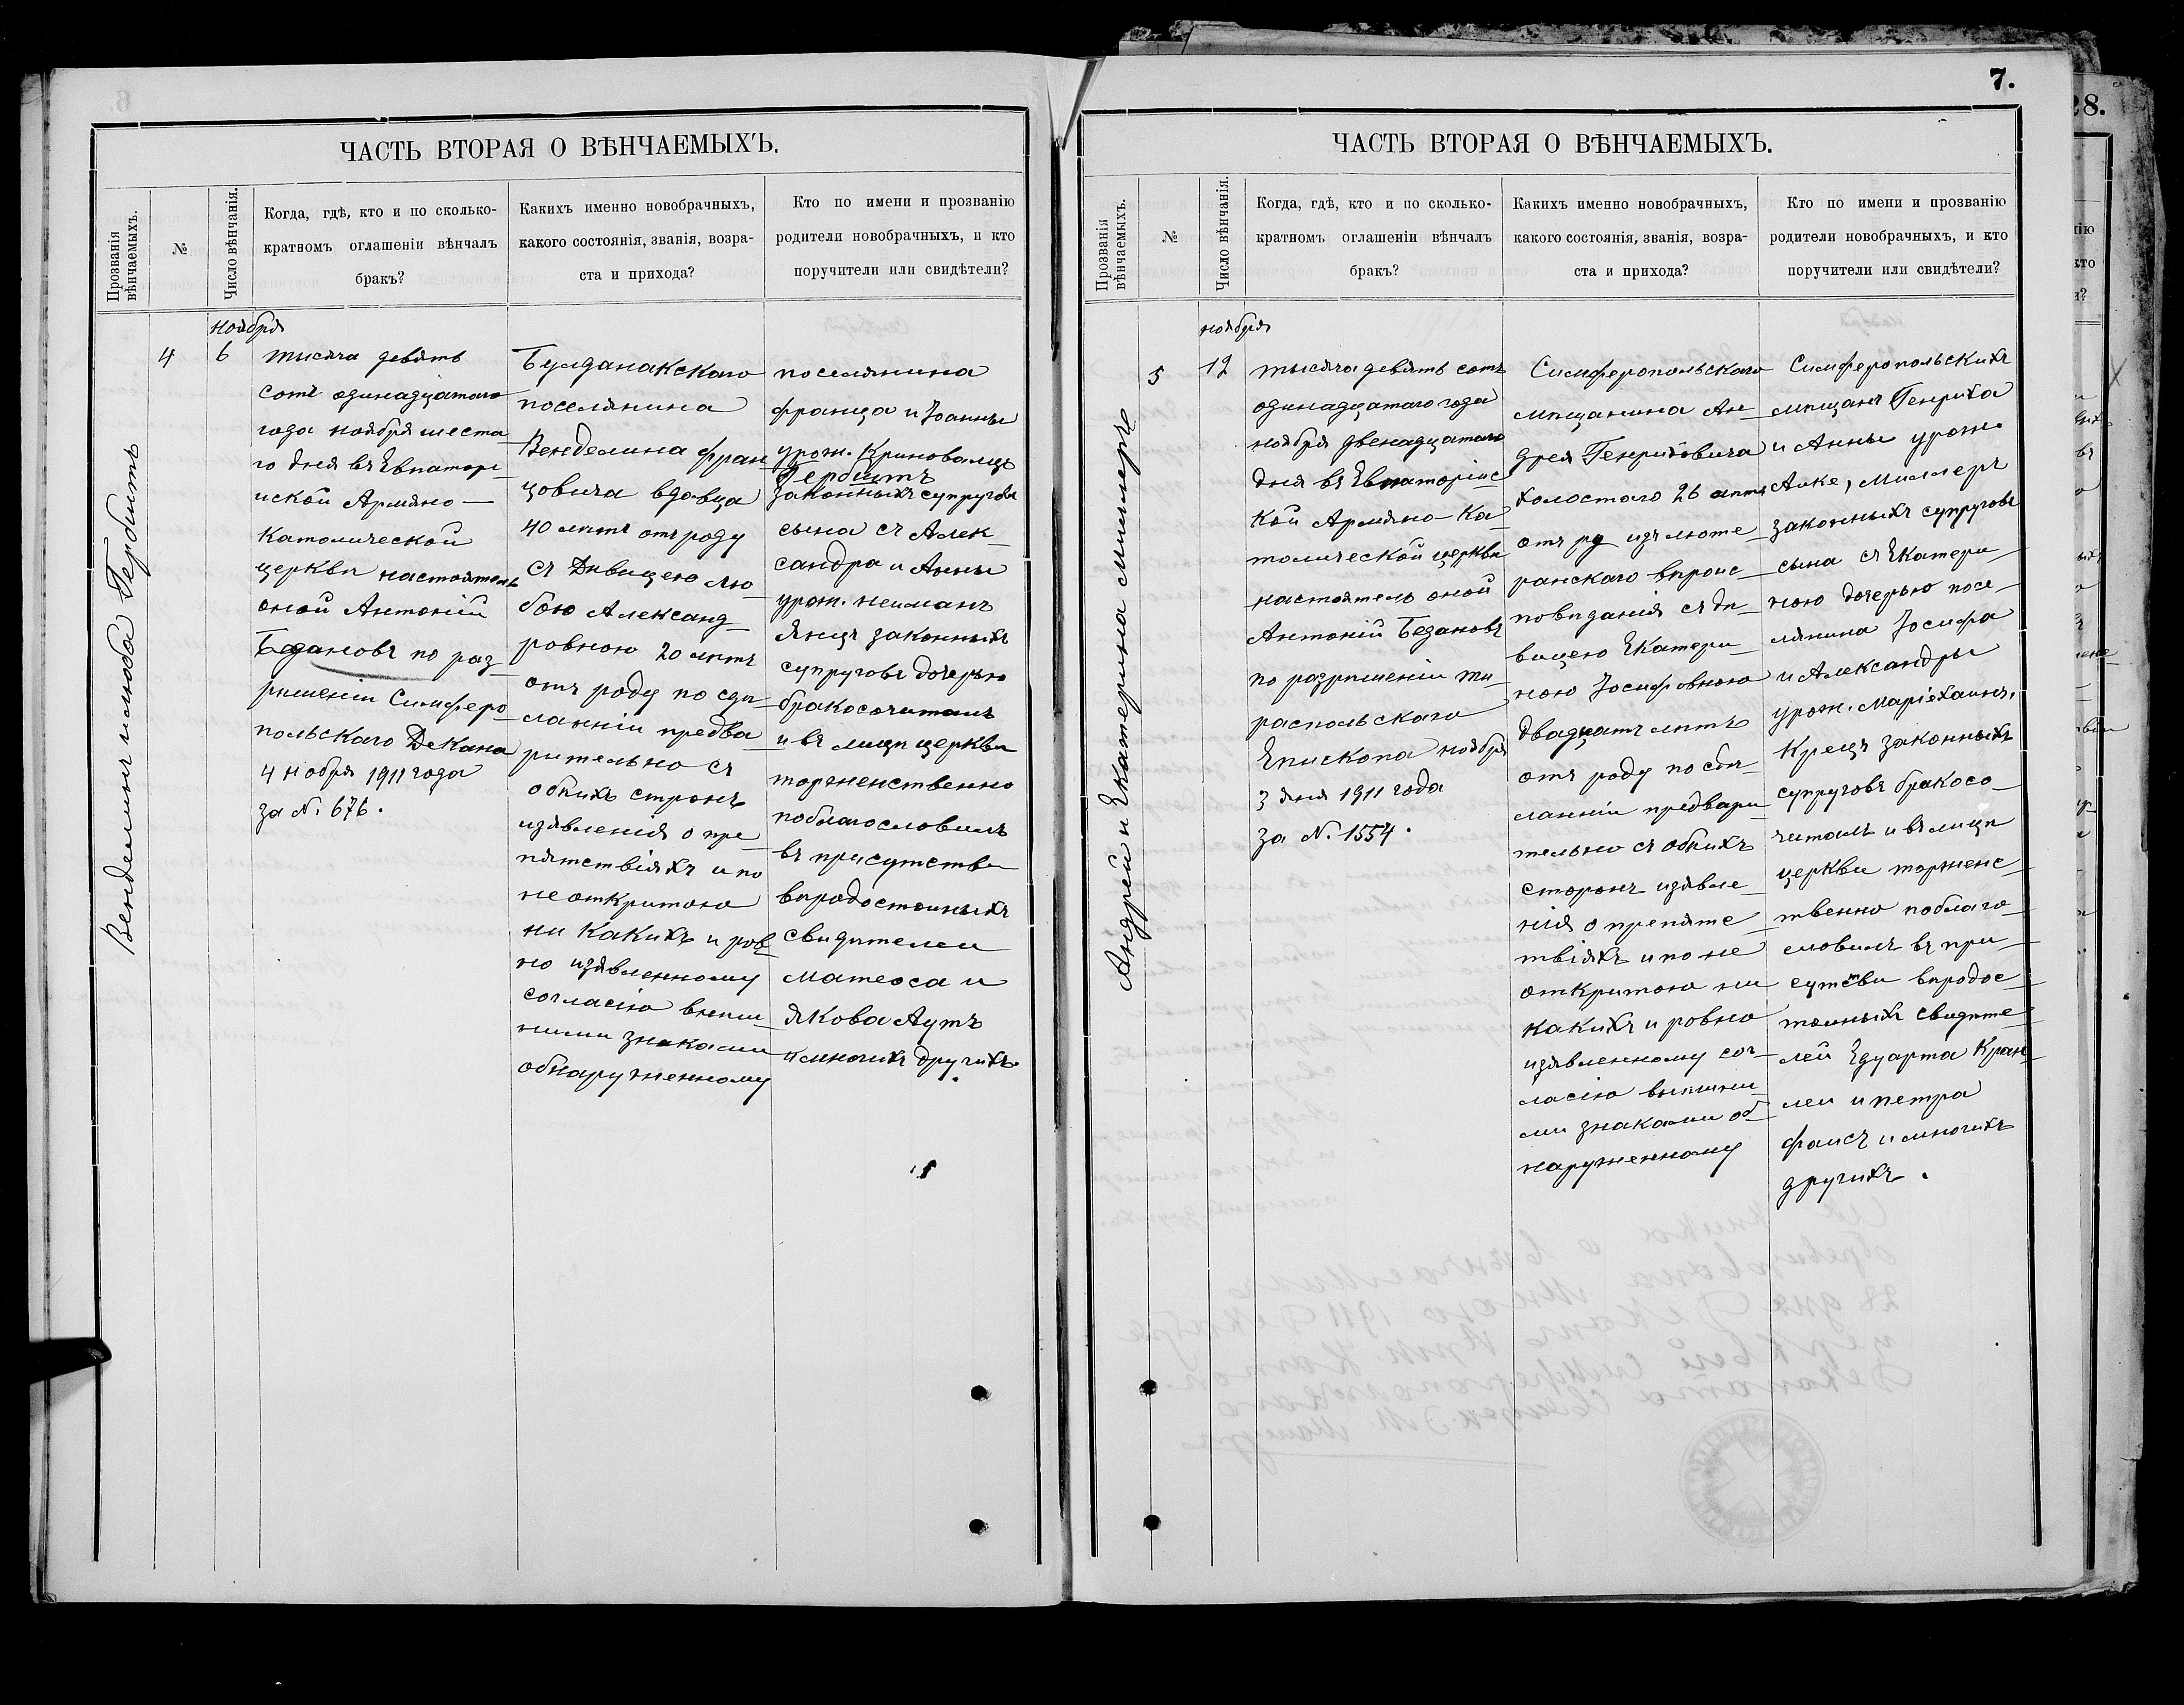 ЧАСТЬ ВТОРАЯ О ВѢНЧАЕМЫХЪ.
Прозванія вѣнчаемыхъ.
№
Число вѣнчанія.
Когда, гдѣ, кто и по сколько-
кратномъ оглашеніи вѣнчалъ
бракъ?
Какихъ именно новобрачныхъ,
какого состоянія, званія, возра-
ста и прихода?
Кто по имени и прозванію
родители новобрачныхъ, и кто
поручители или свидѣтели?
Венделинъ и люба Гербитъ
4
ноября
6
тысяча девять
сотъ одинадцатого
года ноября места
го дня въ Евпатори
иской Армяно-
Католической
церкви настоятель
оной Антоній
Бедановъ по раз
рѣшеніи Симферо
польскаго Декана
4 нобря 1911 года
за N. 676.
Булданакскаго
поселянина
Венделина фран
цовича вдовца
40 лѣтъ отъ роду
съ Дѣвицею лю
бою Александ
ровною 20 лѣтъ
отъ роду по сдѣ
ланніи предва
рительно съ
обѣихъ стронъ
изявленія о пре
пятствіяхъ и по
не открытою
ни какихъ и ров
но изявленному
согласію внѣш
ними знаками
обнаруженному
поселянина
франца и Іоанны
урож. Криновалцъ
Гербитъ
законныхъ супруговъ
сына съ Алек
сандра и Анны
урож. нейманъ
Янцъ законныхъ
супруговъ дочерью
бракосочиталъ
и въ лицѣ церкви
торженственно
поблагословилъ
въ присутстви
вѣродостойныхъ
свидѣтелей
Матеоса и
Якова Аутъ
и многихъ другихъ
7.
ЧАСТЬ ВТОРАЯ О ВѢНЧАЕМЫХЪ.
Прозванія вѣнчаемыхъ.
№
Число вѣнчанія.
Когда, гдѣ, кто и по сколько-
кратномъ оглашеніи вѣнчалъ
бракъ?
Какихъ именно новобрачныхъ,
какого состоянія, званія, возра-
ста и прихода?
Кто по имени и прозванію
родители новобрачныхъ, и кто
поручители или свидѣтели?
Андрей и Екатерина Миллеръ
5
ноября
12
тысяча девять сотъ
одинадцатаго года
ноября двенадцатаго
дня въ Евпаторіис
кой Армяно-Ка
толической церкви
настоятель оной
Антоній Бедановъ
по разрѣшеніи ти
распольскаго
Епископа ноября
3 дня 1911 года
за N. 1554.
Симферопольскаго
мѣщанина Ан
дрея Генриховича
холостого 26 лѣтъ
отъ ру изъ люте
ранскаго вѣроис
повѣданія съ дѣ
вицею Екатери
ною Іосифовною
двадцатъ лѣтъ
отъ роду по сдѣ
ланніи предвари
тельно съ обѣихъ
сторонъ изявле
нія о препятс
твіяхъ и по не
открытою ни
какихъ и ровно
изявленному сог
ласію внѣшни
ми знаками об
наруженному
Симферопольскихъ
мѣщанъ Генриха
и Анны урож.
Анке, Миллеръ
законныхъ супруговъ
сына съ Екатери
ною дочерью посе
лянина Іосифа
и Александры
урож. Маріехаинъ,
Крецъ законныхъ
супруговъ бракосо
читалъ и въ лицѣ
церкви торженс
твенно поблаго
словилъ въ при
сутстви вѣродос
тойныхъ свидѣте
лей Едуарта Кран
лей и петра
фаисъ и многихъ
другихъ.
28.